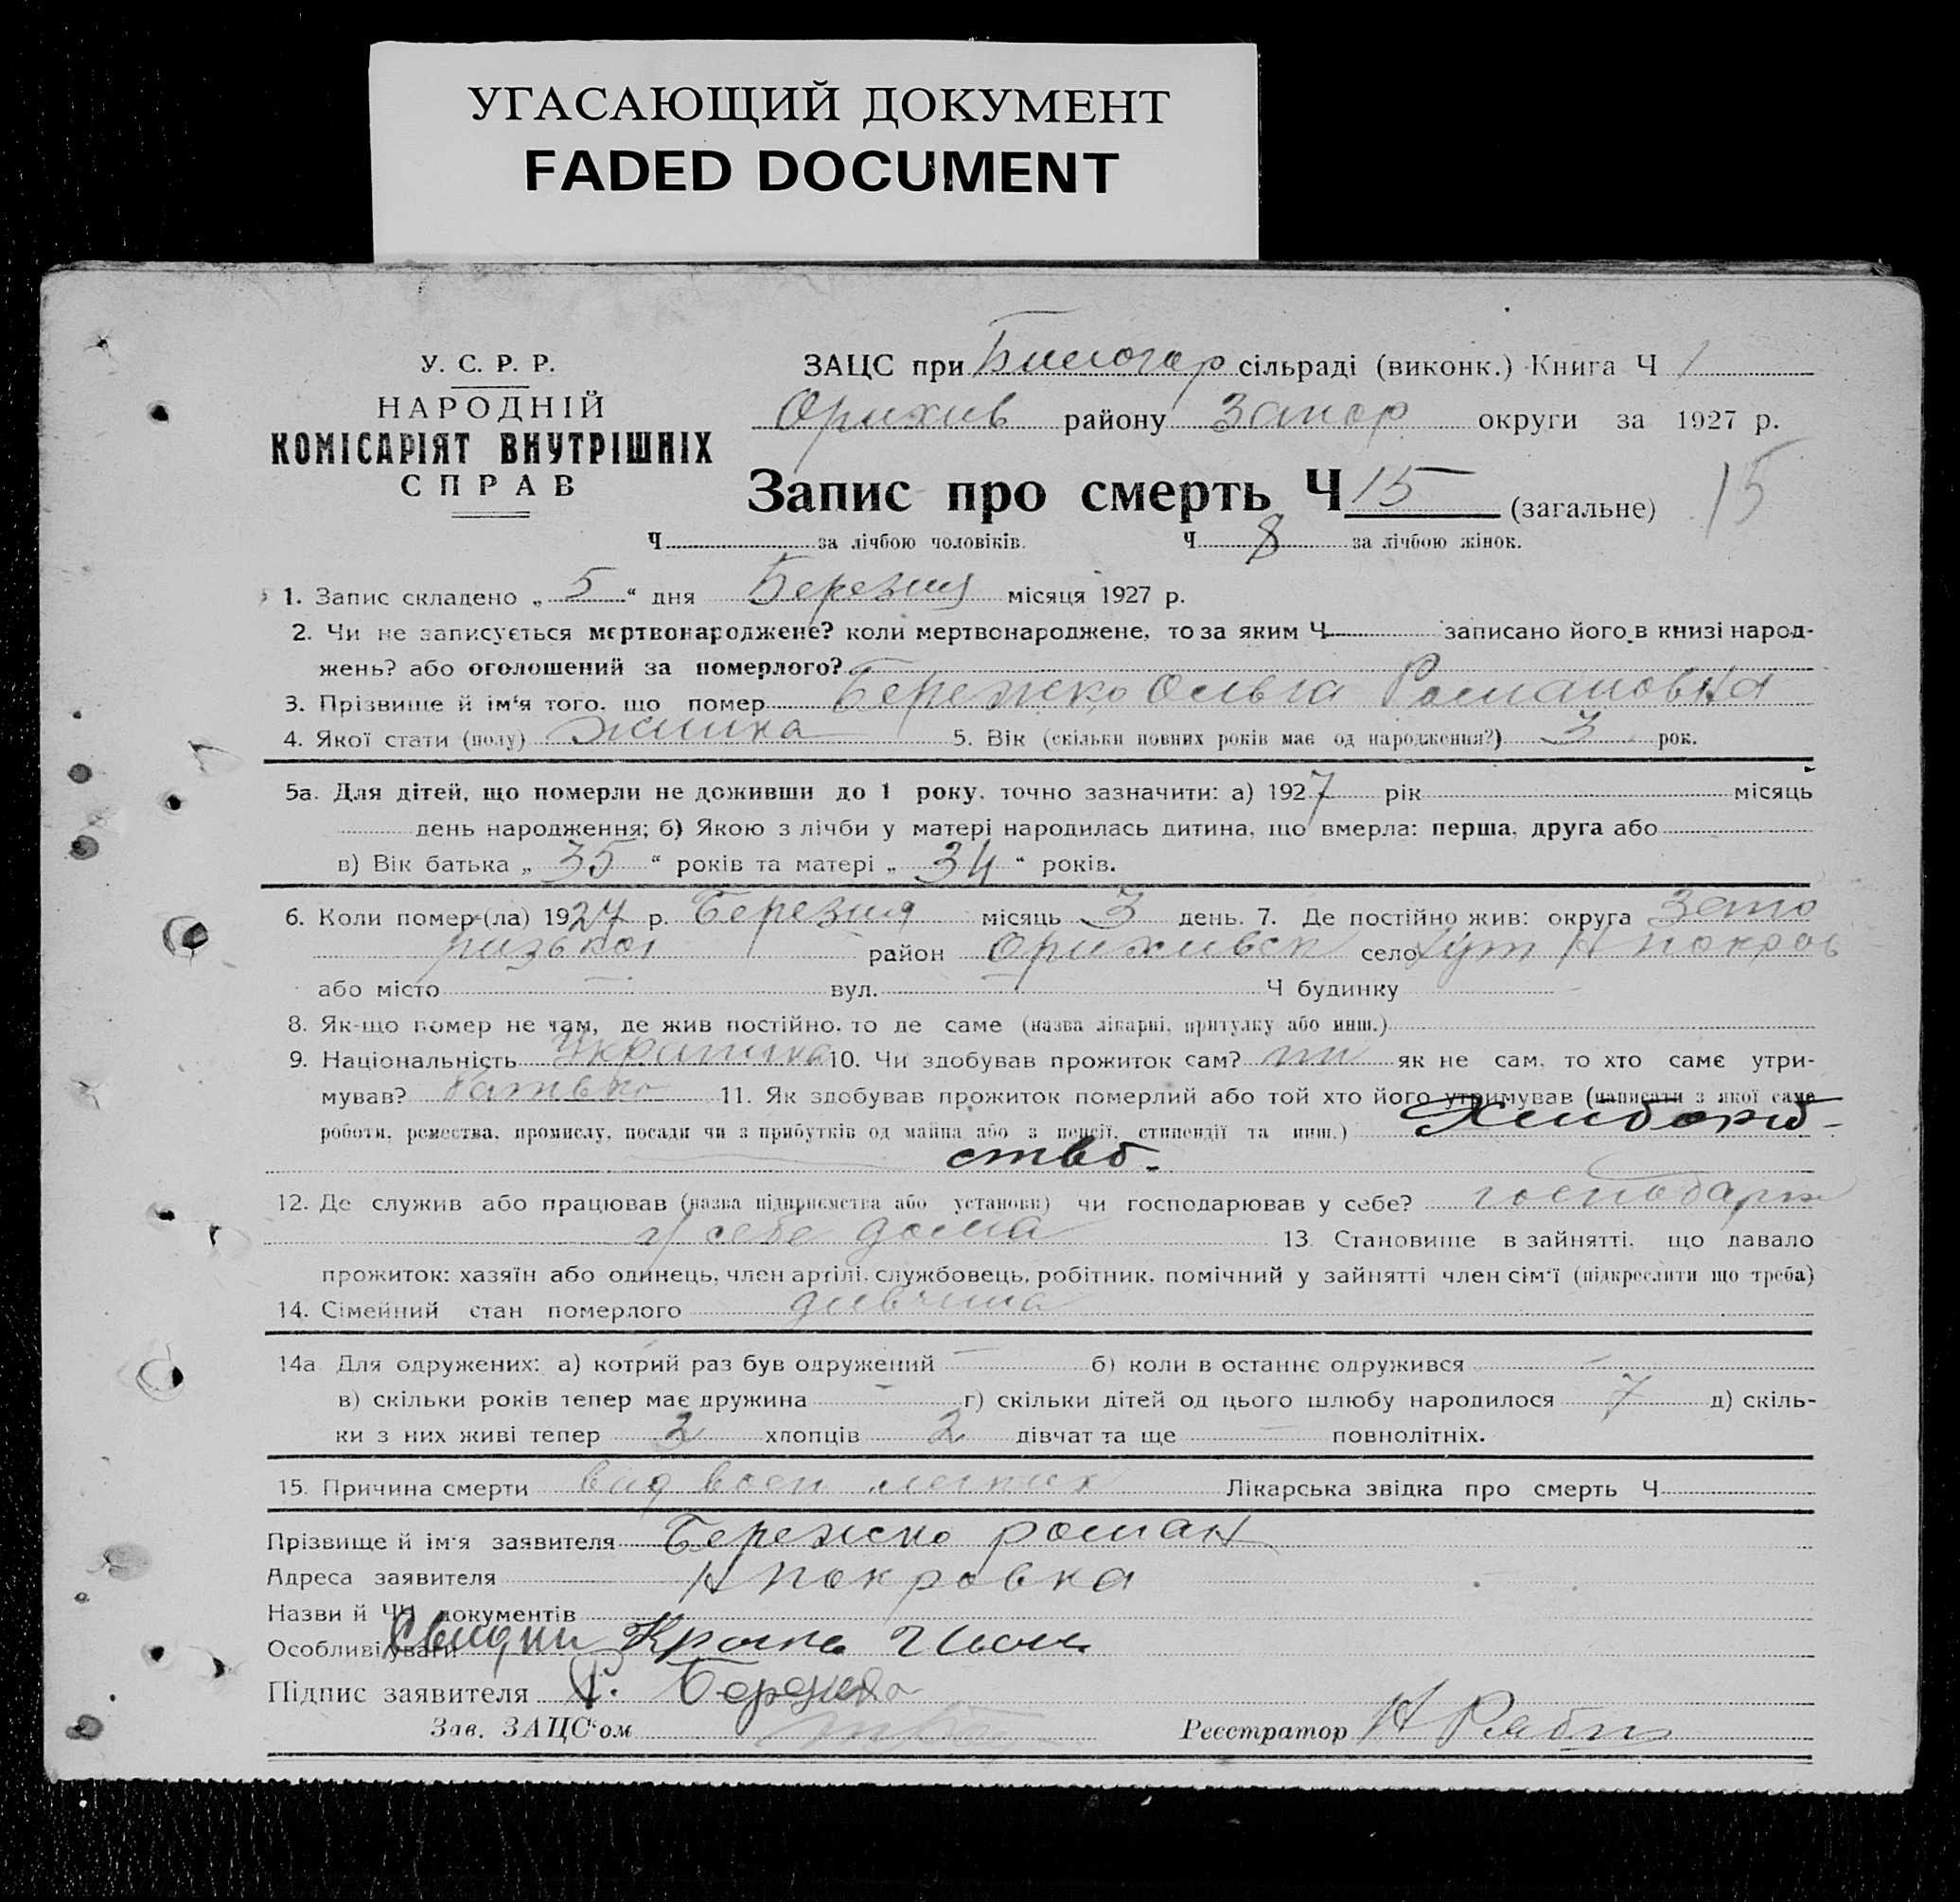 УГАСАЮЩИЙ ДОКУМЕНТ
FADED DOCUMENT
У. С. Р. Р.
НАРОДНІЙ
КОМІСАРІЯТ ВНУТРІШНІХ
СПРАВ
ЗАЦС при Билогор сільраді (виконк.) Книга Ч 1
Орихив району Запор округи за 1927 р.
Запис про смерть Ч 15 (загальне) 15
Ч за лічбою чоловіків. Ч 8 за лічбою жінок.
1. Запис складено „ 5 “ дня Березня місяця 1927 р.
2. Чи не записується мертвонароджене? коли мертвонароджене, то за яким Ч записано його в книзі народ-
жень? або оголошений за померлого?
3. Прізвище й ім‘я того, що помер Бережко Ольга Романовна
4. Якої стати (полу) жинка 5. Вік (скільки повних років має од народження?) 3 рок.
5а. Для дітей, що померли не доживши до 1 року, точно зазначити: а) 1927 рік місяць
день народження; б) Якою з лічби у матері народилась дитина, що вмерла: перша, друга або
в) Вік батька „ 35 “ років та матері „ 34 “ років.
6. Коли помер (ла) 1927 р. Березня місяць 3 день. 7. Де постійно жив: округа Запо
ризькой район Орихивск село Хут Н покров
або місто — вул. — Ч будинку —
8. Як-що помер не там, де жив постійно, то де саме (назва лікарні, притулку або инш.)
9. Національність Украинка 10. Чи здобував прожиток сам? ни як не сам, то хто саме утри-
мував? батько 11. Як здобував прожиток померлий або той хто його утримував (написати з якої саме
роботи, ремества, промислу, посади чи з прибутків од майна або з пенсії, стипендії та инш.) Хлиборб-
ство.
12. Де служив або працював (назва підприємства або установи) чи господарював у себе? господарюв
у себе дома 13. Становище в зайнятті, що давало
прожиток: хазяїн або одинець, член артілі, службовець, робітник, помічний у зайнятті член сім‘ї (підкреслити що треба)
14. Сімейний стан померлого дивчина
14а Для одружених: а) котрий раз був одружений — б) коли в останнє одружився —
в) скільки років тепер має дружина — г) скільки дітей од цього шлюбу народилося 7 д) скіль-
ки з них живі тепер 2 хлопців 2 дівчат та ще — повнолітніх.
15. Причина смерти вид воен легких Лікарська звідка про смерть Ч
Прізвище й ім‘я заявителя Бережко роман
Адреса заявителя Н покровка
Назви й ЧЧ документів
Особливі уваги Свидки
Підпис заявителя Р. Бережко
Зав. ЗАЦС‘ом
Реєстратор Н Рябы